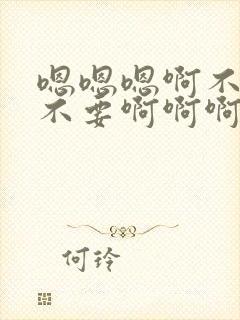 嗯嗯嗯啊不
不要啊啊啊
何玲